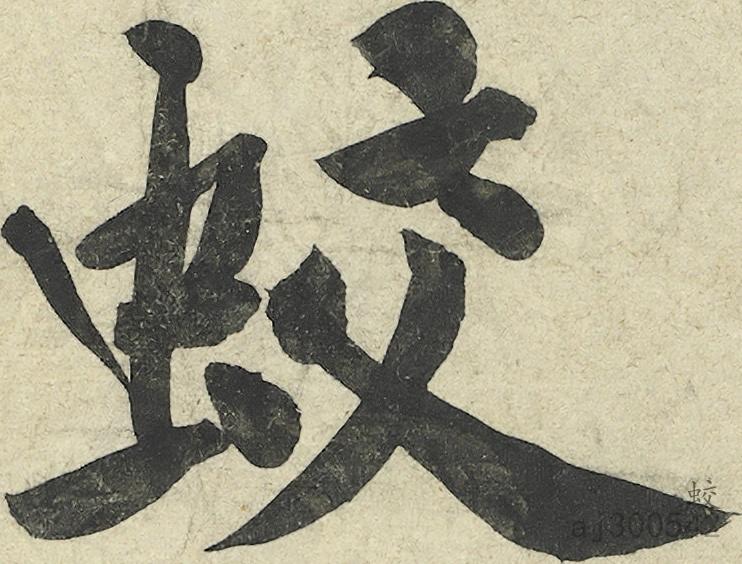 蛟
蛟
aj300542